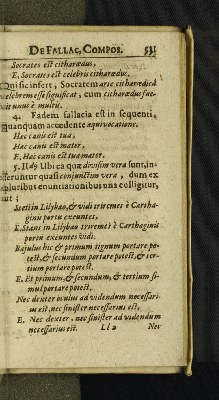 DE FALLAC, COMPOS. 531
Socrates est citharœdus,
E, Socrates est celebris citharœdus.
Qui sic infert, Socratem arte citharœdicâ
celebrem esse significat, cum citharœdus fue-
rit unus è multis.
4. Eadem fallacia est in sequenti,
quanquam accedente æquivocatione.
Hæc canis est tua,
Hæc canis est mater,
E, Hæc canis est tua mater.
5. II. dỹ Ubi ea quæ divisim vera sunt, in-
feruntur quasi conjunctim vera, dum ex
pluribus enunciationibus una colligitur,
ut;
Steti in Lilybæo, & vidi triremes è Cartha-
ginis portu exeuntes,
E. Stans in Lilybæo triremes è Carthaginis
portu exeuntes vidi.
Bajulus hic & primum tignum portare po-
test, & secundum portare potest, & ter-
tium portare potest,
E. Et primum, & secundum, & tertium si-
mul portare potest.
Nec dexter oculus ad videndum necessari-
us est, nec sinister necessarius est,
E. Nec dexter, nec sinister ad videndum
necessarius est. Ll 2 Nec